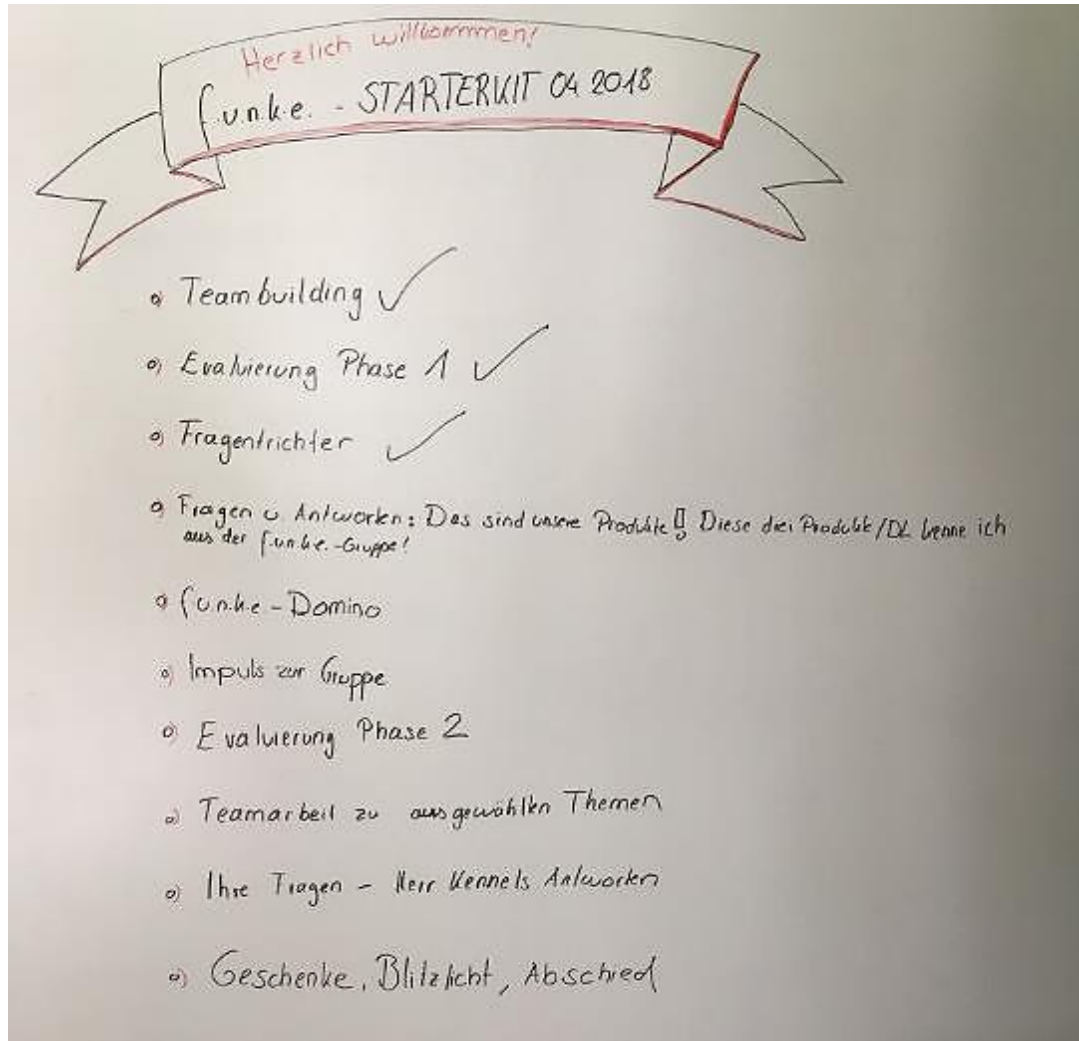 Herzlich willkommen!
f.u.n.k.e. - STARTERKIT 04 2018
Teambuilding ✓
Evaluierung Phase 1 ✓
Fragentrichter ✓
Fragen u. Antworten: Das sind unsere Produkte!! Diese drei Produkte/DL kenne ich
aus der f.u.n.k.e.-Gruppe!
f.u.n.k.e - Domino
Impuls zur Gruppe
Evaluierung Phase 2
Teamarbeit zu ausgewählten Themen
Ihre Fragen - Herr Kennels Antworten
Geschenke, Blitzlicht, Abschied